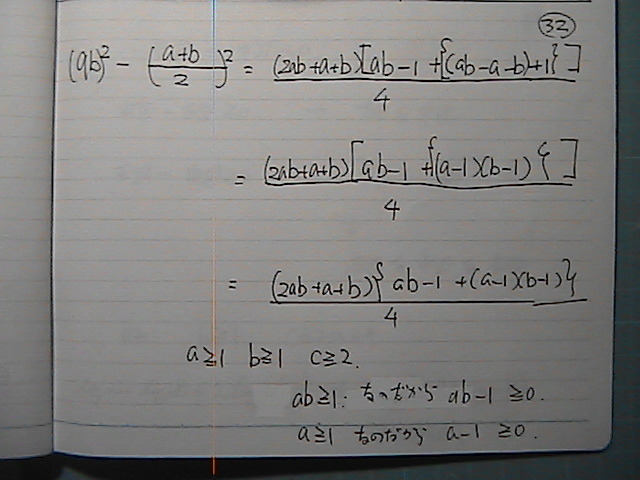 32
(ab)² - ((a+b)/2)² = (2ab+a+b)[ab-1+{(ab-a-b)+1}]/4
= (2ab+a+b)[ab-1+{(a-1)(b-1)}]/4
= (2ab+a+b){ab-1+(a-1)(b-1)}/4
a≧1 b≧1 c≧2.
ab≧1. なのだから ab-1≧0.
a≧1 なのだから a-1≧0.